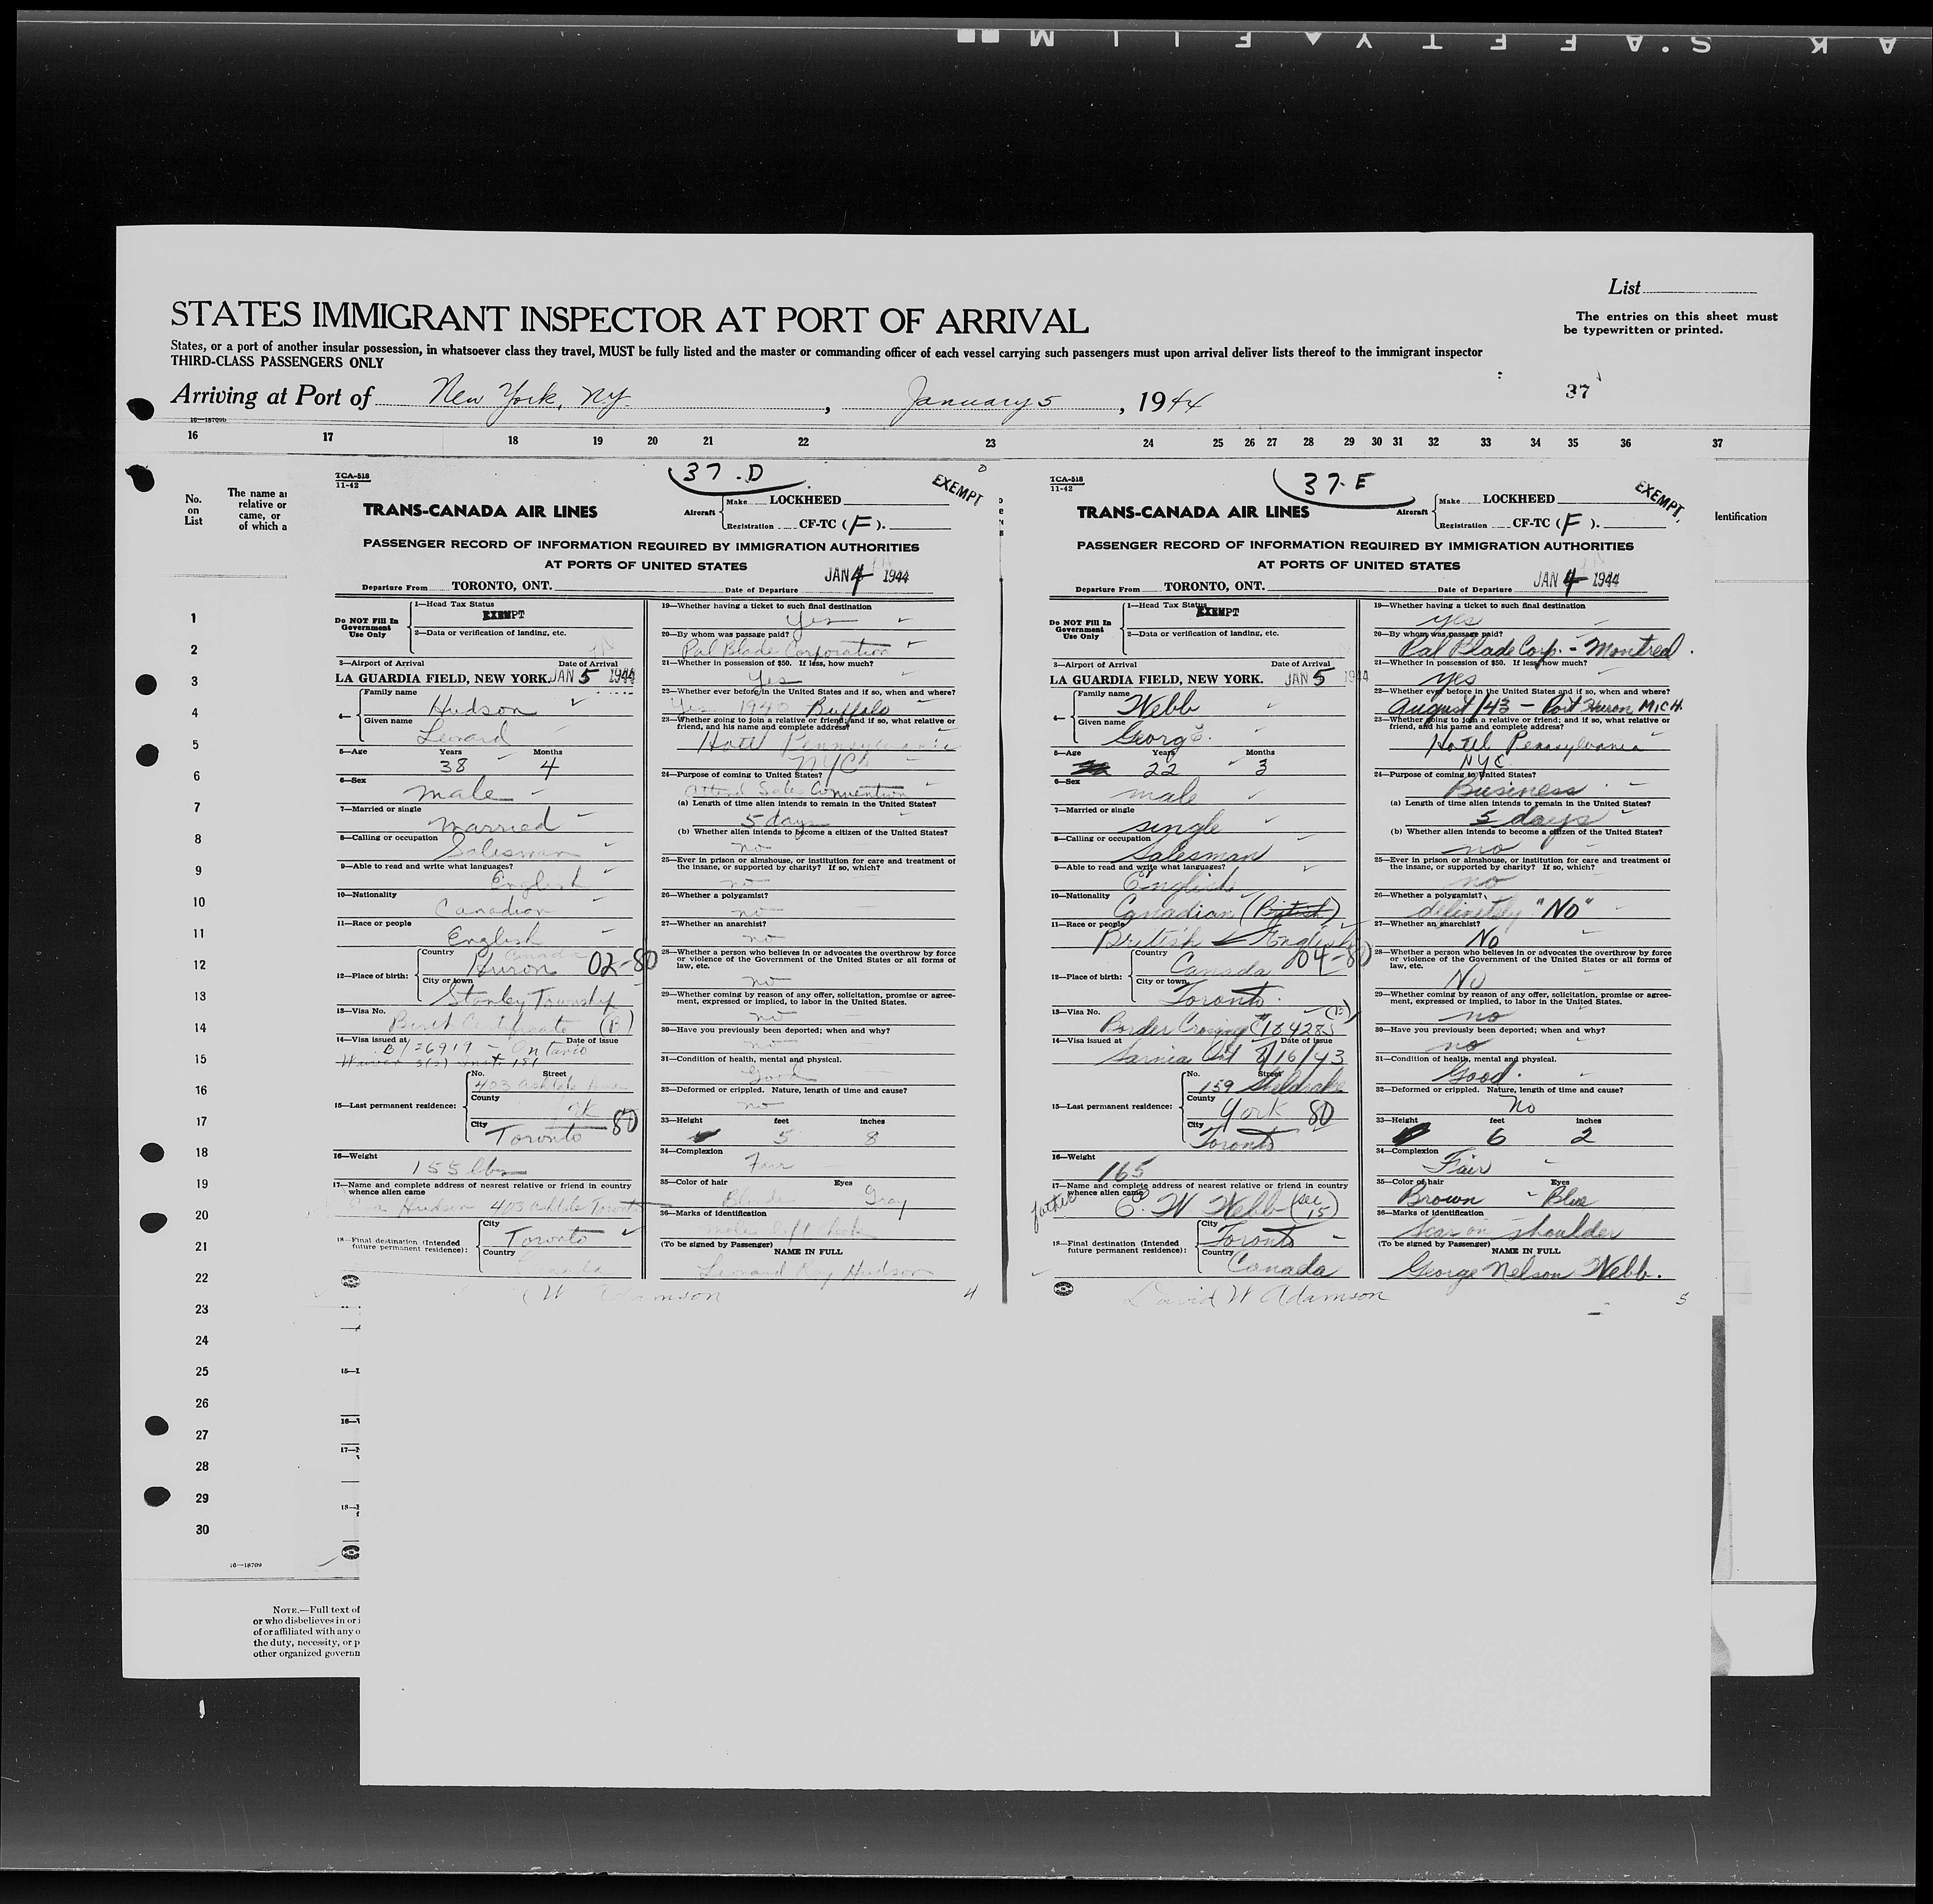 SAFETY FILM
List
STATES IMMIGRANT INSPECTOR AT PORT OF ARRIVAL
The entries on this sheet must
be typewritten or printed.
States, or a port of another insular possession, in whatsoever class they travel, MUST be fully listed and the master or commanding officer of each vessel carrying such passengers must upon arrival deliver lists thereof to the immigrant inspector
THIRD-CLASS PASSENGERS ONLY
Arriving at Port of New York, N.Y. , January 5 , 1944
37
16—18709b
16 17 18 19 20 21 22 23 24 25 26 27 28 29 30 31 32 33 34 35 36 37
No.
on
List
The name a
relative or
came, or
of which a
lentification
1
2
3
4
5
6
7
8
9
10
11
12
13
14
15
16
17
18
19
20
21
22
23
24
25
26
27
28
29
30
16—18709
NOTE.—Full text of
or who disbelieves in or
of or affiliated with any o
the duty, necessity, or p
other organized governm
TCA-518
11-42
37.D
EXEMPT
TRANS-CANADA AIR LINES
Aircraft
Make LOCKHEED
Registration CF-TC (F).
PASSENGER RECORD OF INFORMATION REQUIRED BY IMMIGRATION AUTHORITIES
AT PORTS OF UNITED STATES
Departure From TORONTO, ONT.
Date of Departure JAN 4 1944
Do NOT Fill In
Government
Use Only
1—Head Tax Status
EXEMPT
2—Data or verification of landing, etc.
3—Airport of Arrival Date of Arrival
LA GUARDIA FIELD, NEW YORK. JAN 5 1944
4—
Family name
Hudson
Given name
Leonard
5—Age Years Months
38 4
6—Sex
male
7—Married or single
married
8—Calling or occupation
Salesman
9—Able to read and write what languages?
English
10—Nationality
Canadian
11—Race or people
English
12—Place of birth:
Country Canada
Huron 02-80
City or town
Stanley Township
13—Visa No.
Birth Certificate (B)
14—Visa issued at Date of issue
B/26919 - Ontario
15—Last permanent residence:
No. Street
403 Ashdale Ave
County
York
City
Toronto 80
16—Weight
155 lbs
17—Name and complete address of nearest relative or friend in country
whence alien came
Hudson 403 Ashdale Toronto
18—Final destination (Intended
future permanent residence):
City
Toronto
Country
Canada
19—Whether having a ticket to such final destination
Yes
20—By whom was passage paid?
Pal Blade Corporation
21—Whether in possession of $50. If less, how much?
Yes
22—Whether ever before in the United States and if so, when and where?
Yes 1940 Buffalo
23—Whether going to join a relative or friend; and if so, what relative or
friend, and his name and complete address?
Hotel Pennsylvania
NYC
24—Purpose of coming to United States?
Attend Sales Convention
(a) Length of time alien intends to remain in the United States?
5 days
(b) Whether alien intends to become a citizen of the United States?
no
25—Ever in prison or almshouse, or institution for care and treatment of
the insane, or supported by charity? If so, which?
no
26—Whether a polygamist?
no
27—Whether an anarchist?
no
28—Whether a person who believes in or advocates the overthrow by force
or violence of the Government of the United States or all forms of
law, etc.
no
29—Whether coming by reason of any offer, solicitation, promise or agree-
ment, expressed or implied, to labor in the United States.
no
30—Have you previously been deported; when and why?
no
31—Condition of health, mental and physical.
Good
32—Deformed or crippled. Nature, length of time and cause?
no
33—Height feet inches
5 8
34—Complexion
Fair
35—Color of hair Eyes
Blonde Gray
36—Marks of identification
mole left cheek
(To be signed by Passenger) NAME IN FULL
Leonard Ray Hudson
W Adamson
4
TCA-518
11-42
37-E
EXEMPT
TRANS-CANADA AIR LINES
Aircraft
Make LOCKHEED
Registration CF-TC (F ).
PASSENGER RECORD OF INFORMATION REQUIRED BY IMMIGRATION AUTHORITIES
AT PORTS OF UNITED STATES
Departure From TORONTO, ONT.
Date of Departure JAN 4 1944
Do NOT Fill In
Government
Use Only
1—Head Tax Status
EXEMPT
2—Data or verification of landing, etc.
3—Airport of Arrival Date of Arrival
LA GUARDIA FIELD, NEW YORK. JAN 5 1944
4—
Family name
Webb
Given name
George
5—Age Years Months
22 3
6—Sex
male
7—Married or single
single
8—Calling or occupation
Salesman
9—Able to read and write what languages?
English
10—Nationality
Canadian (British)
11—Race or people
British English
12—Place of birth:
Country
Canada 04-80
City or town
Toronto.
13—Visa No. (B)
Border Crossing #184285
14—Visa issued at Date of issue
Sarnia Ont 8/16/43
15—Last permanent residence:
No. Street
159 Sheldrake
County
York 80
City
Toronto
16—Weight
165
17—Name and complete address of nearest relative or friend in country
whence alien came
father E. W. Webb (see 15)
18—Final destination (Intended
future permanent residence):
City
Toronto
Country
Canada
19—Whether having a ticket to such final destination
yes
20—By whom was passage paid?
Pal Blade Corp. - Montreal.
21—Whether in possession of $50. If less, how much?
yes
22—Whether ever before in the United States and if so, when and where?
August/43 - Port Huron MICH.
23—Whether going to join a relative or friend; and if so, what relative or
friend, and his name and complete address?
Hotel Pennsylvania
NYC
24—Purpose of coming to United States?
Business
(a) Length of time alien intends to remain in the United States?
5 days
(b) Whether alien intends to become a citizen of the United States?
no
25—Ever in prison or almshouse, or institution for care and treatment of
the insane, or supported by charity? If so, which?
no
26—Whether a polygamist?
definitely "No"
27—Whether an anarchist?
No
28—Whether a person who believes in or advocates the overthrow by force
or violence of the Government of the United States or all forms of
law, etc.
No
29—Whether coming by reason of any offer, solicitation, promise or agree-
ment, expressed or implied, to labor in the United States.
no
30—Have you previously been deported; when and why?
no
31—Condition of health, mental and physical.
Good.
32—Deformed or crippled. Nature, length of time and cause?
No
33—Height feet inches
6 2
34—Complexion
Fair
35—Color of hair Eyes
Brown - Blue
36—Marks of identification
Scar on shoulder
(To be signed by Passenger) NAME IN FULL
George Nelson Webb.
David W Adamson
5